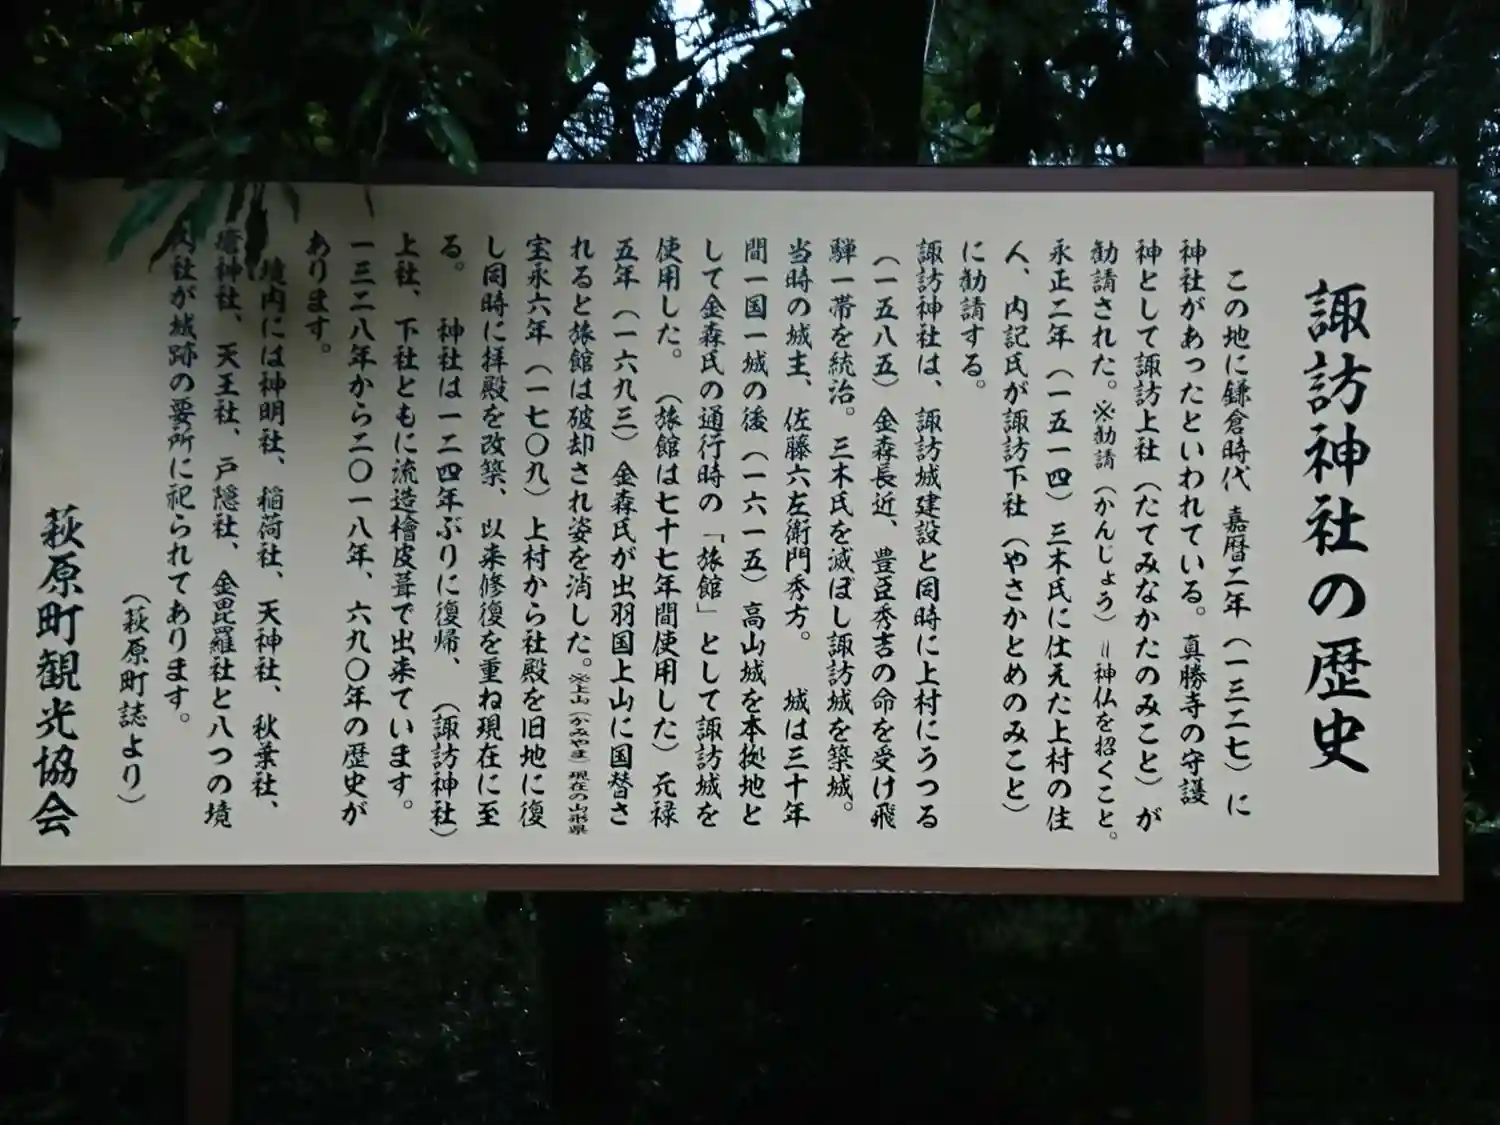 諏訪神社の歴史
この地に鎌倉時代 嘉暦二年（一三二七）に
神社があったといわれている。真勝寺の守護
神として諏訪上社（たてみなかたのみこと）が
勧請された。※勧請（かんじょう）＝神仏を招くこと。
永正二年（一五一四）三木氏に仕えた上村の住
人、内記氏が諏訪下社（やさかとめのみこと）
に勧請する。
諏訪神社は、諏訪城建設と同時に上村にうつる
（一五八五）金森長近、豊臣秀吉の命を受け飛
騨一帯を統治。三木氏を滅ぼし諏訪城を築城。
当時の城主、佐藤六左衛門秀方。 城は三十年
間一国一城の後（一六一五）高山城を本拠地と
して金森氏の通行時の「旅館」として諏訪城を
使用した。（旅館は七十七年間使用した）元禄
五年（一六九三）金森氏が出羽国上山に国替さ
れると旅館は破却され姿を消した。※上山（かみやま）現在の山形県
宝永六年（一七〇九）上村から社殿を旧地に復
し同時に拝殿を改築、以来修復を重ね現在に至
る。 神社は一二四年ぶりに復帰、（諏訪神社）
上社、下社ともに流造檜皮葺で出来ています。
一三二八年から二〇一八年、六九〇年の歴史が
あります。
境内には神明社、稲荷社、天神社、秋葉社、
神社、天王社、戸隠社、金毘羅社と八つの境
社が城跡の要所に祀られてあります。
（萩原町誌より）
萩原町観光協会